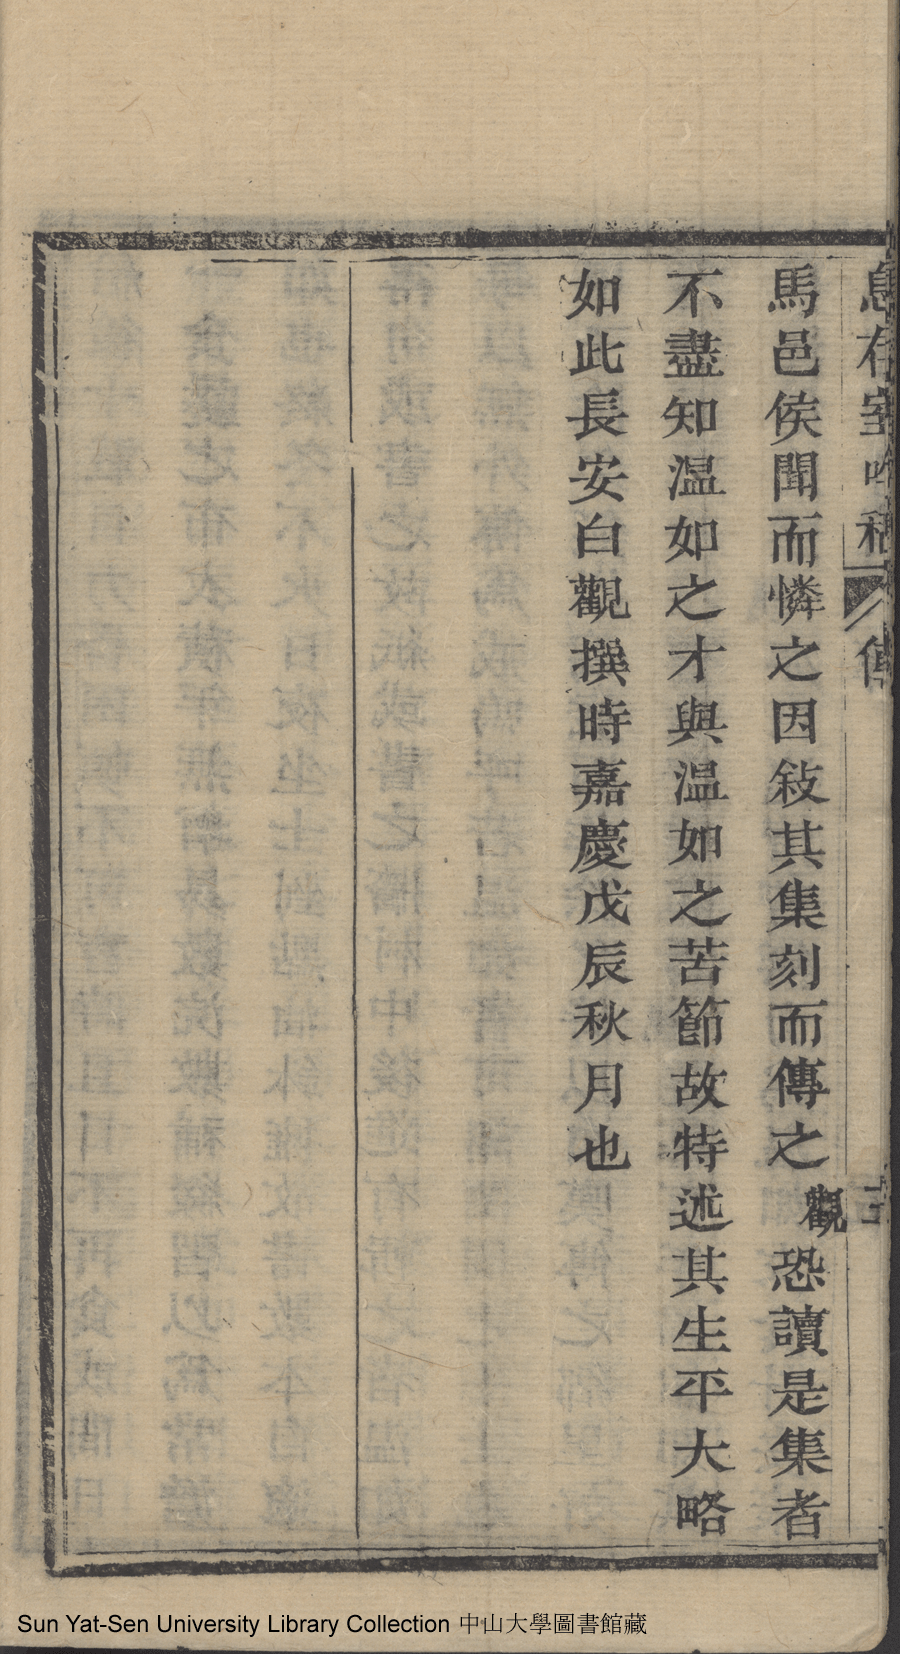 息存室吟稿 傳
馬邑侯聞而憐之因敍其集刻而傳之觀恐讀是集者
不盡知温如之才與温如之苦節故特述其生平大略
如此長安白觀撰時嘉慶戊辰秋月也
Sun Yat-Sen University Library Collection 中山大學圖書館藏